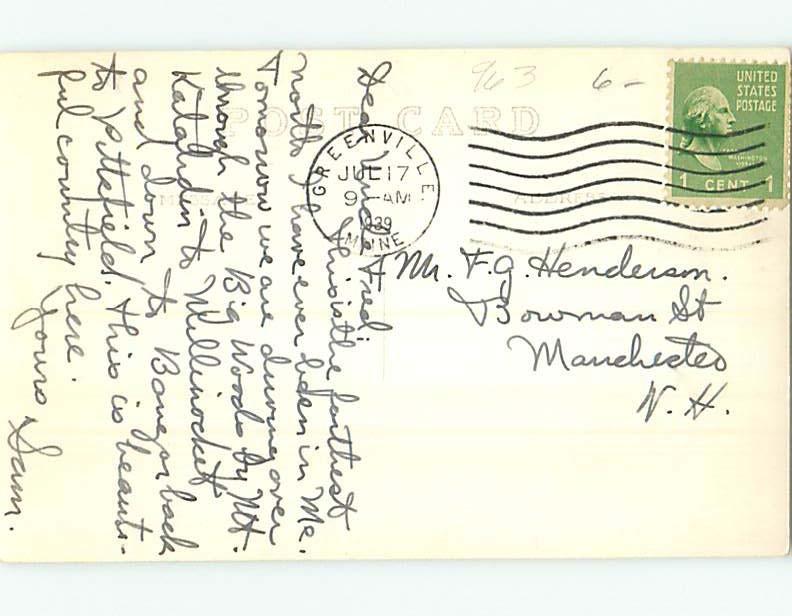 963 6-
POST CARD
UNITED
STATES
POSTAGE
WASHINGTON
1 CENT 1
GREENVILLE
JUL 17
9 - AM
1939
MAINE
MESSAGE
ADDRESS
Dear Fred:
this is the farthest
north I have ever been in Me.
Tomorrow we are driving over
through the Big Woods by Mt.
Katahdin to Millinocket
and down to Bangor back
to Pittsfield. this is beauti-
ful country here.
Yours Sam.
Mr. F.G. Henderson.
Bowman St
Manchester
N. H.